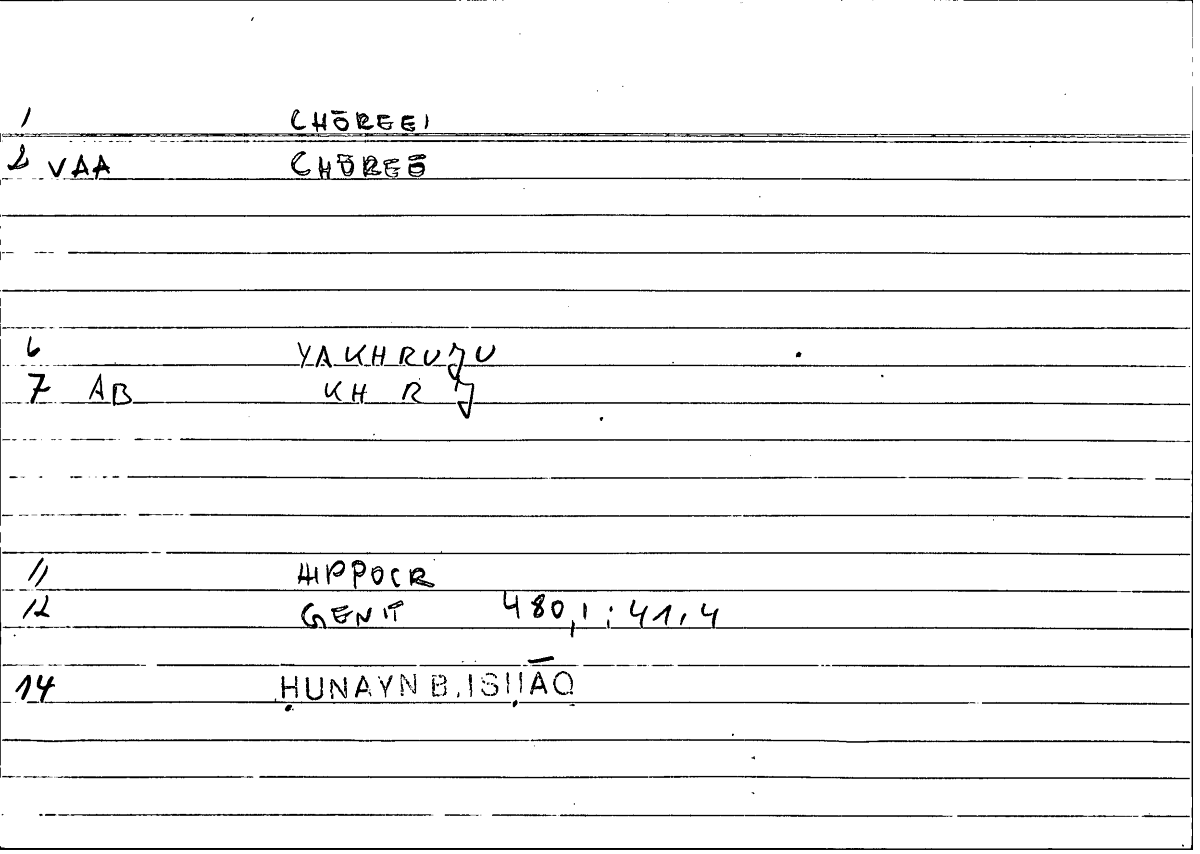 1 CHŌREEI
2 VAA CHŌREŌ
6 YAKHRUJU
7 AB KH R J
11 HIPPOCR
12 GENIT 480,1 : 41,4
14 ḤUNAYN B. ISḤĀQ